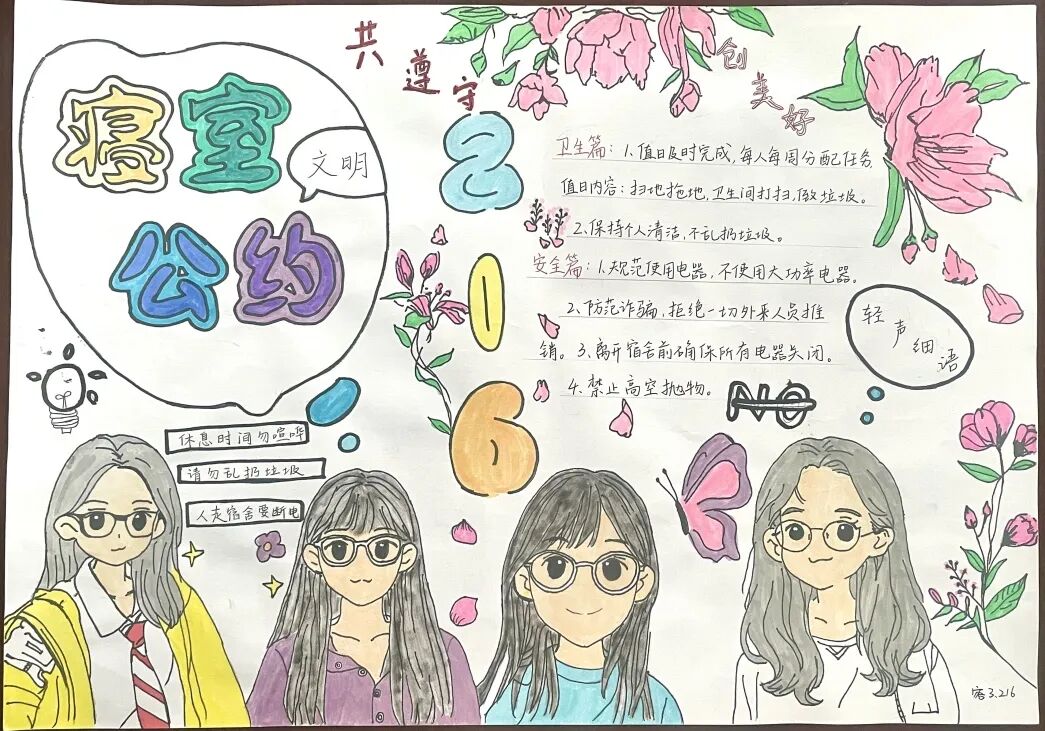 共遵守
创美好
寝室
公约
文明
216
卫生篇：1.值日及时完成，每人每周分配任务
值日内容：扫地拖地，卫生间打扫，倒垃圾。
2.保持个人清洁，不乱扔垃圾。
安全篇：1.规范使用电器，不使用大功率电器。
2.防范诈骗，拒绝一切外来人员推
销。3.离开宿舍前确保所有电器关闭。
4.禁止高空抛物。
NO
轻声细语
休息时间勿喧哗
请勿乱扔垃圾
人走宿舍要断电
宿3.216